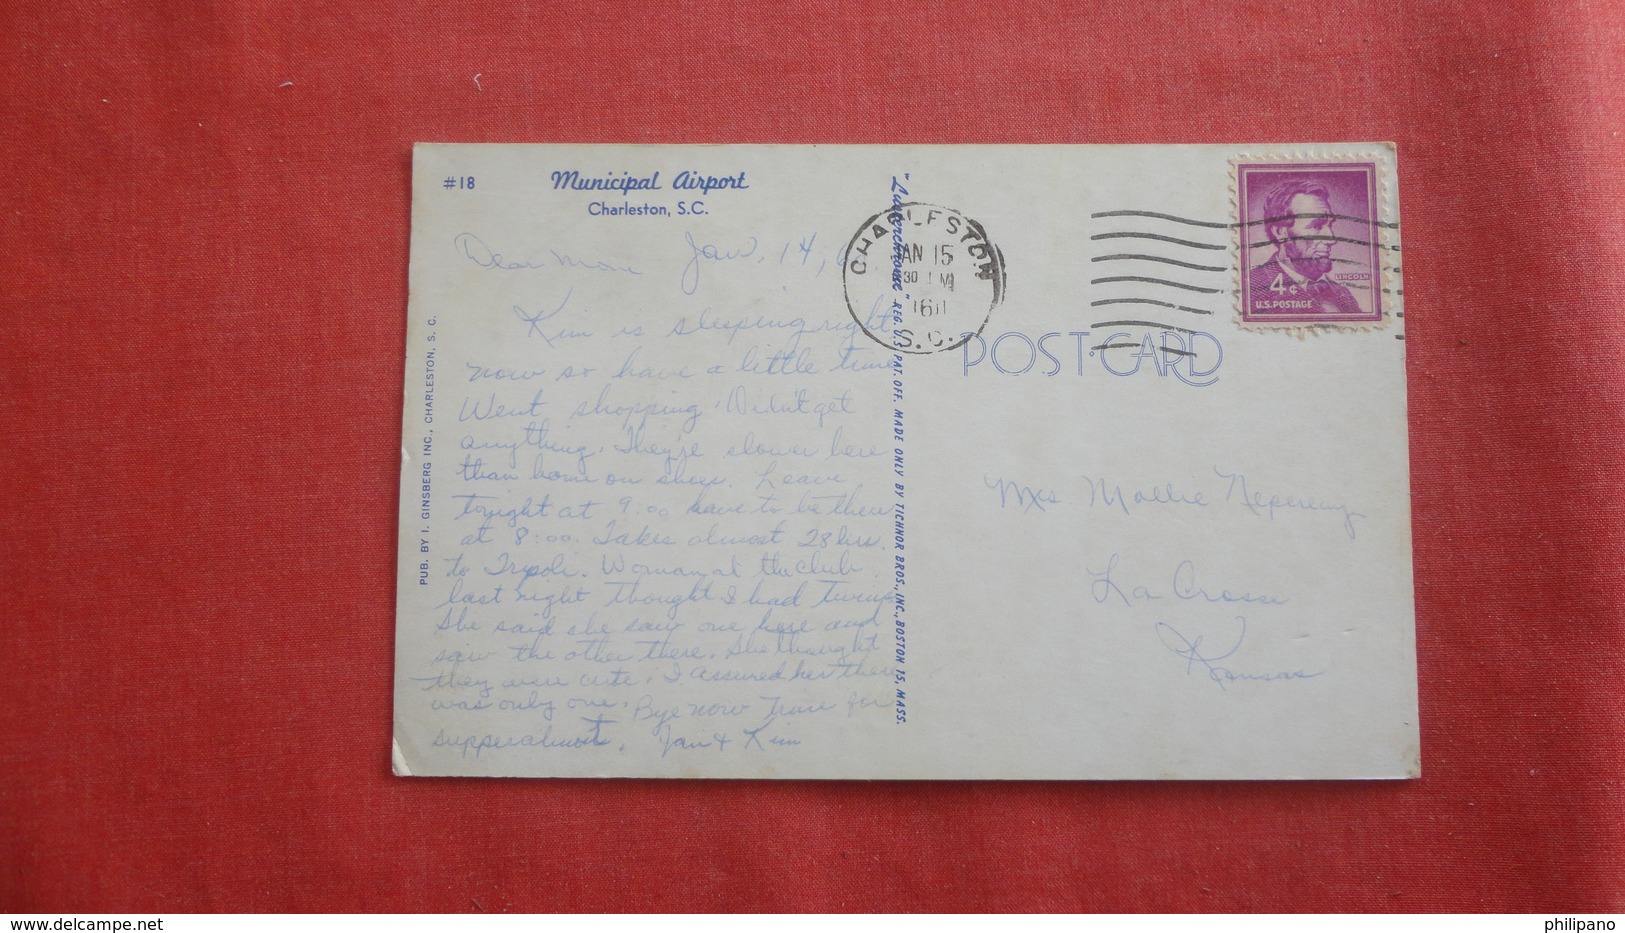 #18
Municipal Airport
Charleston, S.C.
Dear Mom Jan. 14, 6
Kim is sleeping right
now so have a little time
Went shopping. Didn't get
anything. They're slower here
than home on shoes. Leave
tonight at 9:00 have to be there
at 8:00. Takes almost 28 hrs.
to Tripoli. Woman at the club
last night thought I had twins
She said she saw one here and
saw the other there. She thought
they were cute. I assured her there
was only one. Bye now Time for
supper almost. Jan & Kim
PUB. BY I. GINSBERG INC., CHARLESTON, S. C.
"Lusterchrome" REG. U.S. PAT. OFF. MADE ONLY BY TICHNOR BROS., INC., BOSTON 15, MASS.
CHARLESTON
JAN 15
30 M
S.C.
4¢
LINCOLN
U.S. POSTAGE
POST·CARD
Mrs Mollie
La Crosse
Kansas
www.delcampe.net
philipano